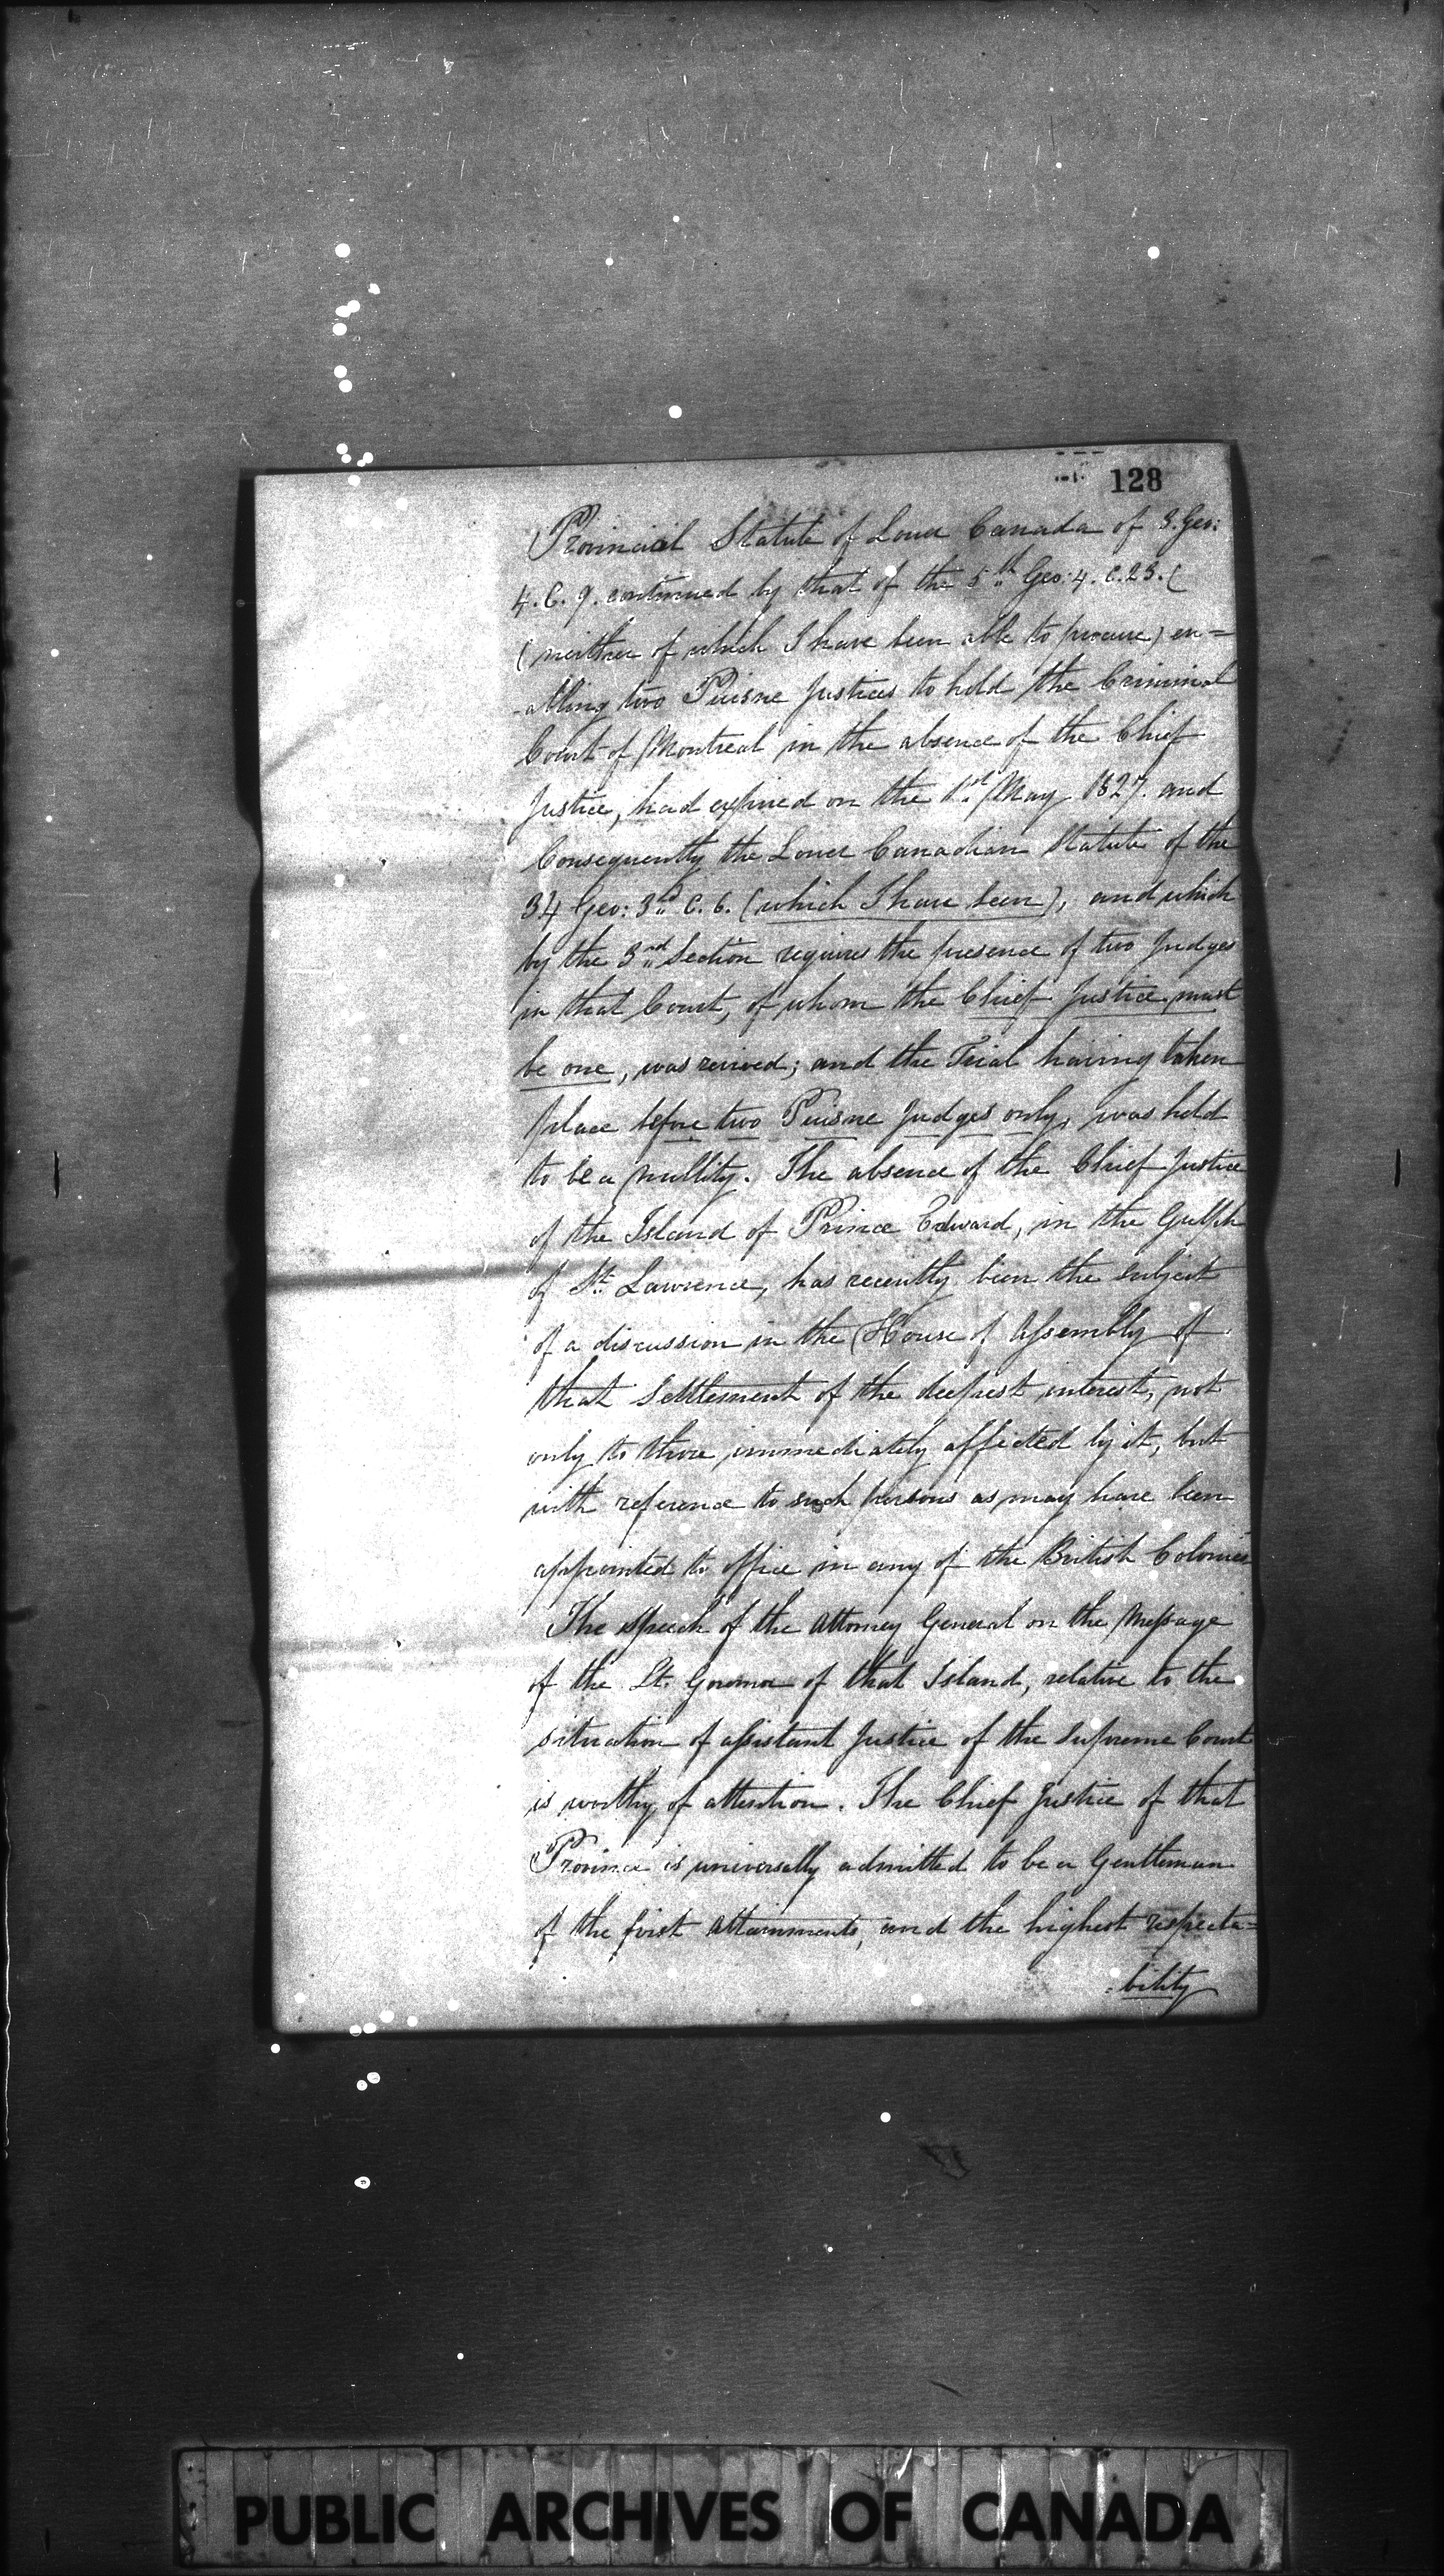 128
Provincial Statute of Lower Canada of 3. Geo:
4. C. 9. continued by that of the 5th Geo: 4. C. 23. (
(neither of which I have been able to procure) en=
-abling two Puisne Justices to hold the Criminal
Court of Montreal in the absence of the Chief
Justice, had expired on the 1st May 1827. and
Consequently the Lower Canadian Statute of the
34 Geo: 3rd C. 6. (which I have seen), and which
by the 3rd Section requires the presence of two Judges
in that Court, of whom the Chief Justice must
be one, was revived; and the Trial having taken
place before two Puisne Judges only, was held
to be a nullity. The absence of the Chief Justice
of the Island of Prince Edward, in the Gulph
of St. Lawrence, has recently been the subject
of a discussion in the House of Assembly of
that Settlement of the deepest interest, not
only to those immediately affected by it, but
with reference to such persons as may have been
appointed to office in any of the British Colonies
The speech of the Attorney General on the Message
of the Lt. Governor of that Island, relative to the
situation of assistant Justice of the Supreme Court
is worthy of attention. The Chief Justice of that
Province is universally admitted to be a Gentleman
of the first attainments, and the highest respecta=
=bility
PUBLIC ARCHIVES OF CANADA